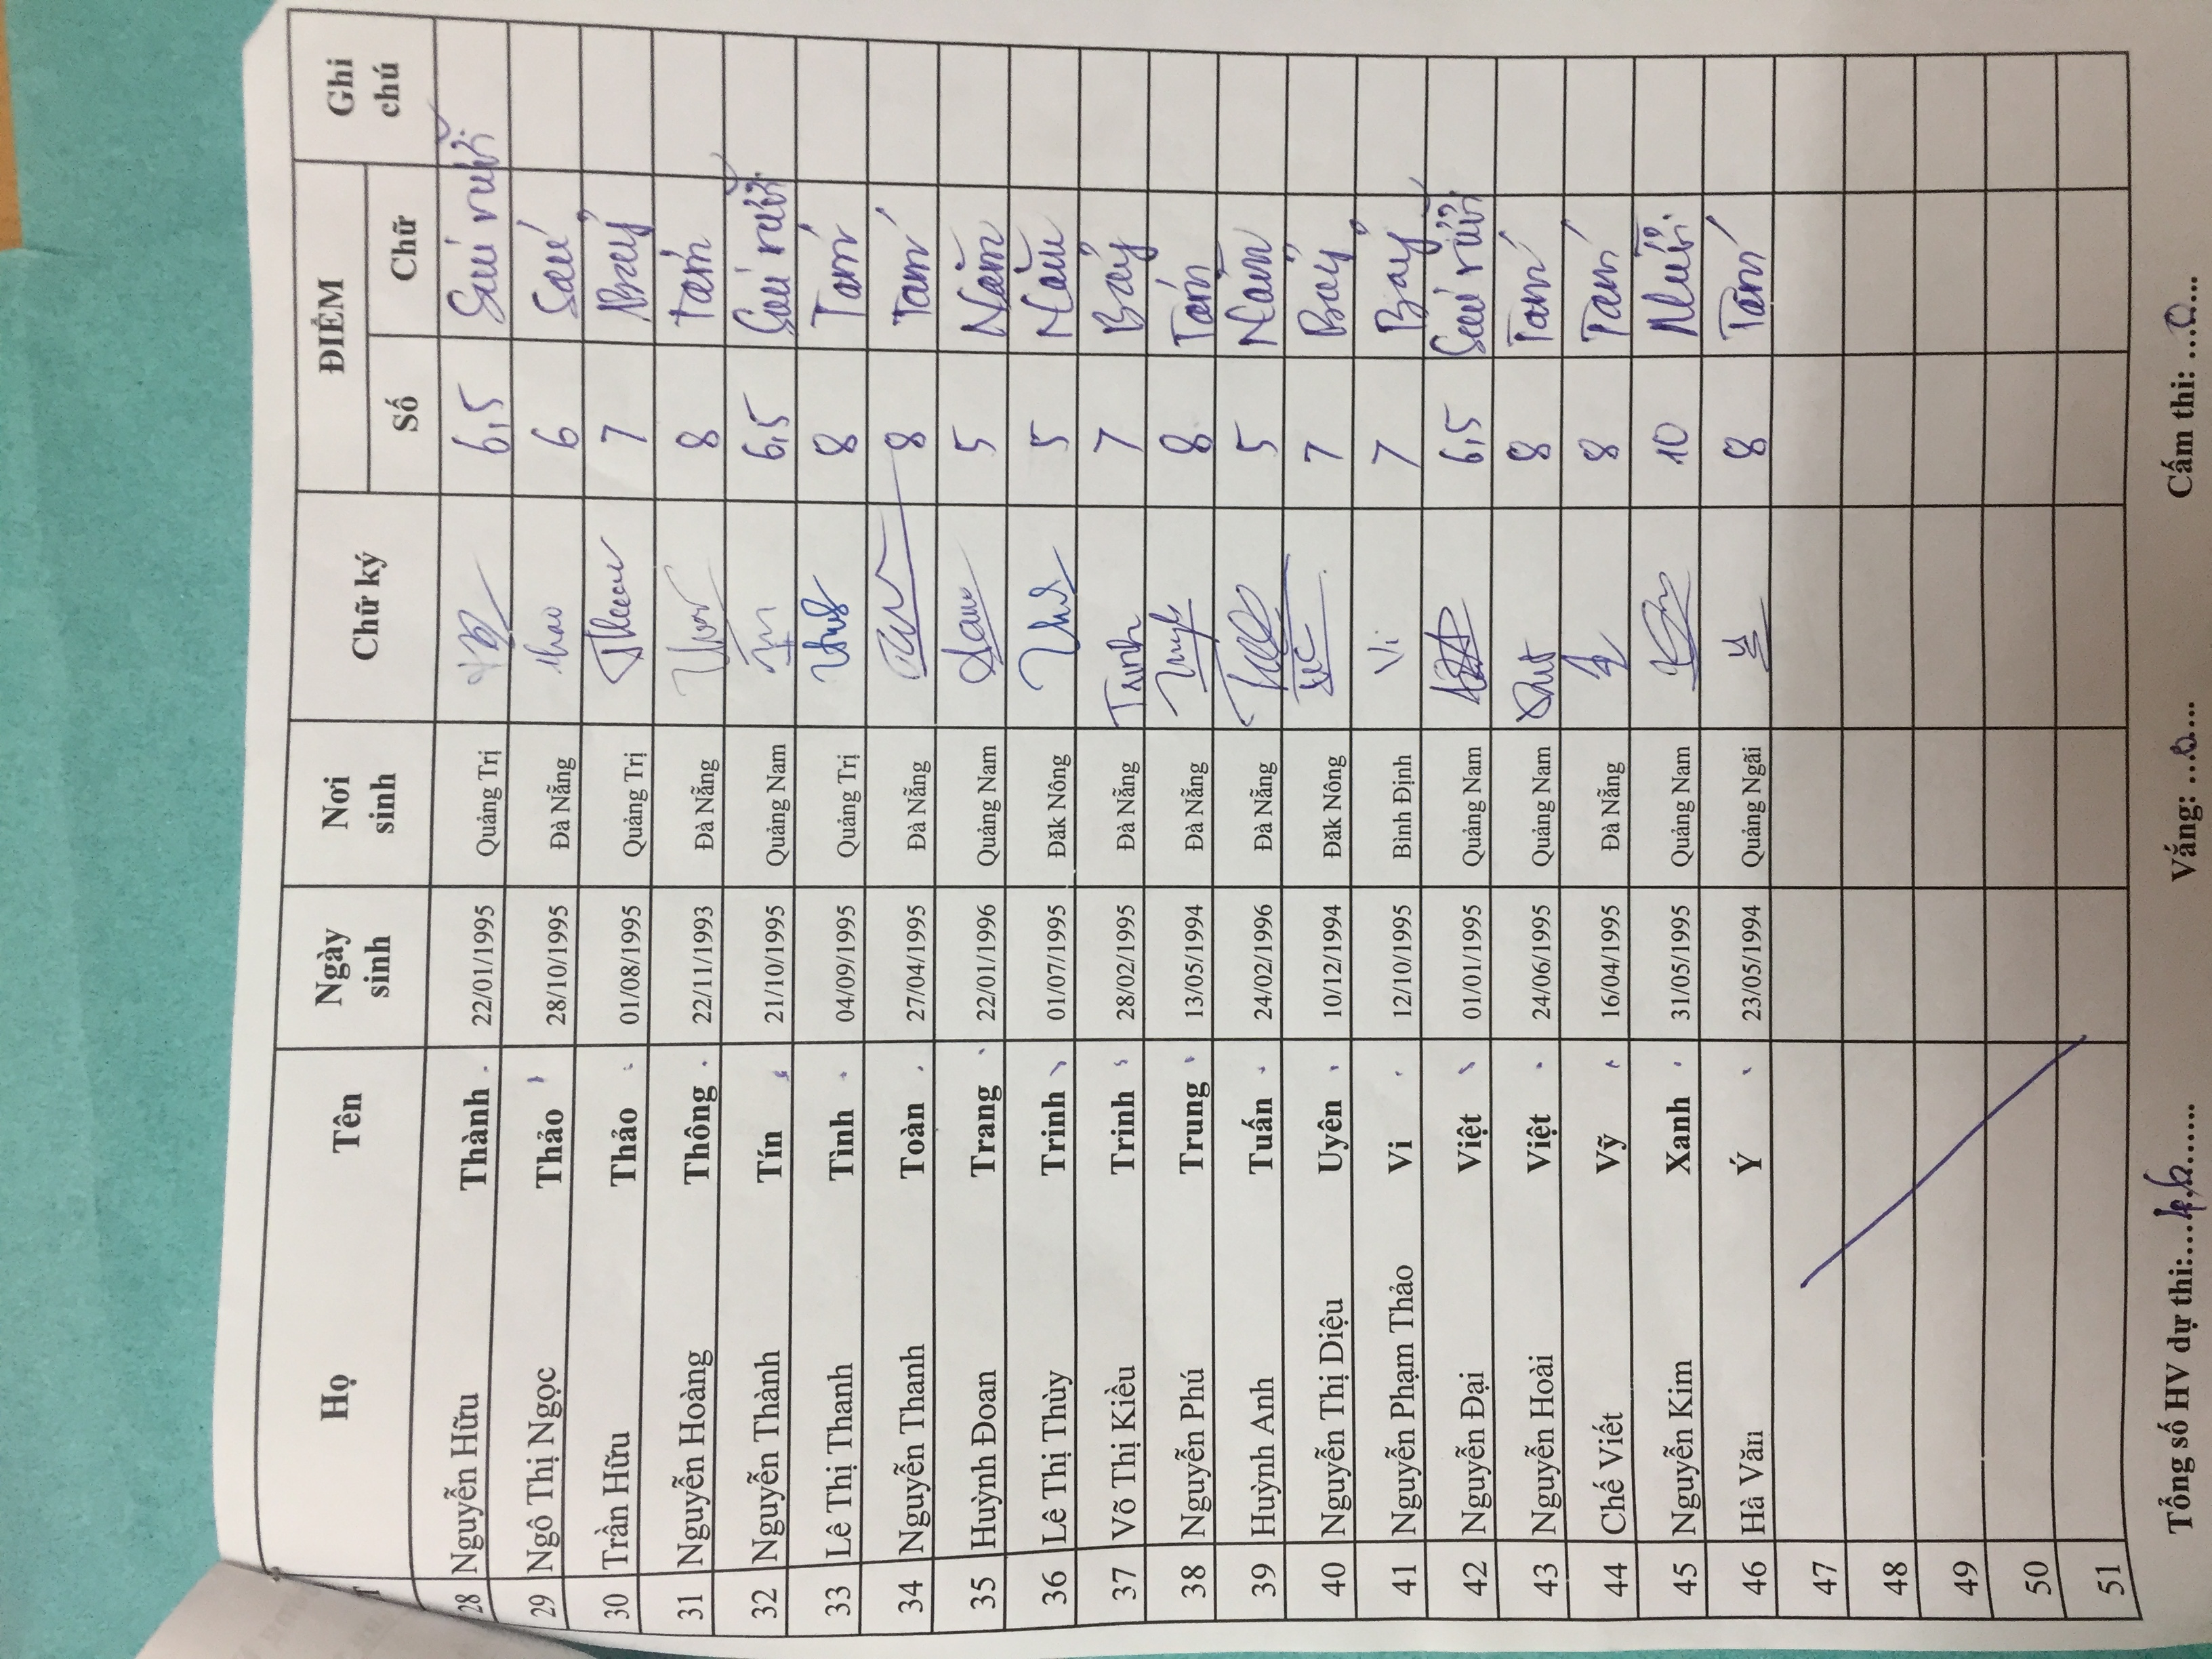 Họ Tên Ngày sinh Nơi sinh Chữ ký ĐIỂM Ghi chú
Số Chữ
28 Nguyễn Hữu Thành 22/01/1995 Quảng Trị 6,5 Sáu rưỡi
29 Ngô Thị Ngọc Thảo 28/10/1995 Đà Nẵng thao 6 Sáu
30 Trần Hữu Thảo 01/08/1995 Quảng Trị 7 Bảy
31 Nguyễn Hoàng Thông 22/11/1993 Đà Nẵng 8 Tám
32 Nguyễn Thành Tín 21/10/1995 Quảng Nam 6,5 Sáu rưỡi
33 Lê Thị Thanh Tình 04/09/1995 Quảng Trị 8 Tám
34 Nguyễn Thanh Toàn 27/04/1995 Đà Nẵng 8 Tám
35 Huỳnh Đoan Trang 22/01/1996 Quảng Nam 5 Năm
36 Lê Thị Thùy Trinh 01/07/1995 Đăk Nông 5 Năm
37 Võ Thị Kiều Trinh 28/02/1995 Đà Nẵng Trinh 7 Bảy
38 Nguyễn Phú Trung 13/05/1994 Đà Nẵng 8 Tám
39 Huỳnh Anh Tuấn 24/02/1996 Đà Nẵng 5 Năm
40 Nguyễn Thị Diệu Uyên 10/12/1994 Đăk Nông 7 Bảy
41 Nguyễn Phạm Thảo Vi 12/10/1995 Bình Định Vi 7 Bảy
42 Nguyễn Đại Việt 01/01/1995 Quảng Nam 6,5 Sáu rưỡi
43 Nguyễn Hoài Việt 24/06/1995 Quảng Nam 8 Tám
44 Chế Viết Vỹ 16/04/1995 Đà Nẵng 8 Tám
45 Nguyễn Kim Xanh 31/05/1995 Quảng Nam 10 Mười
46 Hà Văn Ý 23/05/1994 Quảng Ngãi 8 Tám
47
48
49
50
51
Tổng số HV dự thi:....46...... Vắng: ...0.... Cấm thi: ...0...